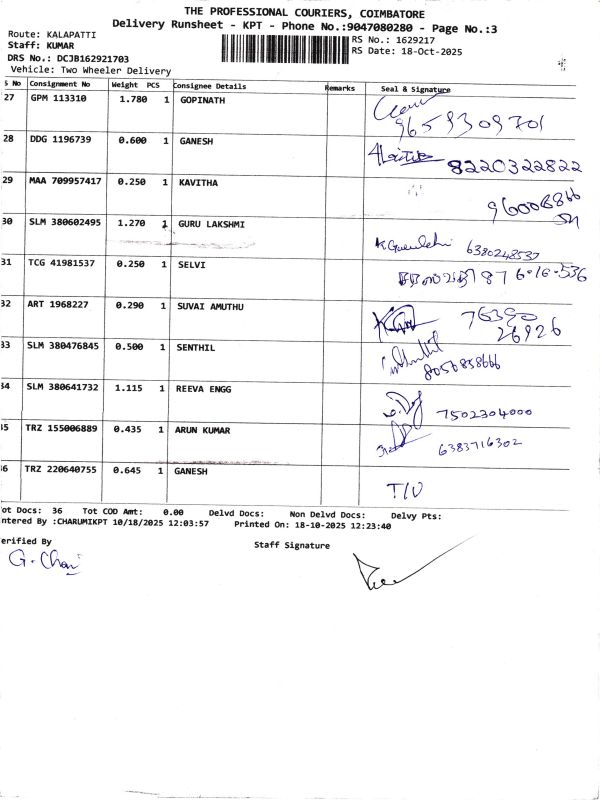 THE PROFESSIONAL COURIERS, COIMBATORE
Delivery Runsheet - KPT - Phone No.:9047080280 - Page No.:3
Route: KALAPATTI
Staff: KUMAR
DRS No.: DCJB162921703
Vehicle: Two Wheeler Delivery
RS No.: 1629217
RS Date: 18-Oct-2025
S No Consignment No Weight PCS Consignee Details Remarks Seal & Signature
27 GPM 113310 1.780 1 GOPINATH 9659309701
28 DDG 1196739 0.600 1 GANESH 8220322822
29 MAA 709957417 0.250 1 KAVITHA
30 SLM 380602495 1.270 1 GURU LAKSHMI 6380248537
31 TCG 41981537 0.250 1 SELVI
32 ART 1968227 0.290 1 SUVAI AMUTHU 76390
26926
33 SLM 380476845 0.500 1 SENTHIL 8056858666
34 SLM 380641732 1.115 1 REEVA ENGG 7502304000
35 TRZ 155006889 0.435 1 ARUN KUMAR 6383716302
36 TRZ 220640755 0.645 1 GANESH T/U
ot Docs: 36 Tot COD Amt: 0.00 Delvd Docs: Non Delvd Docs: Delvy Pts:
ntered By :CHARUMIKPT 10/18/2025 12:03:57 Printed On: 18-10-2025 12:23:40
erified By Staff Signature